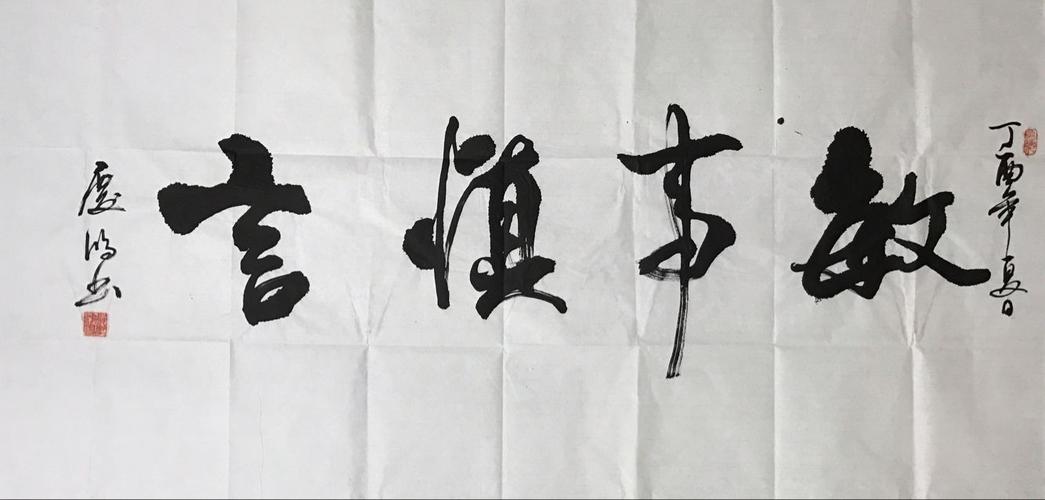 丁酉年夏日
敏事慎言
庆鸿书